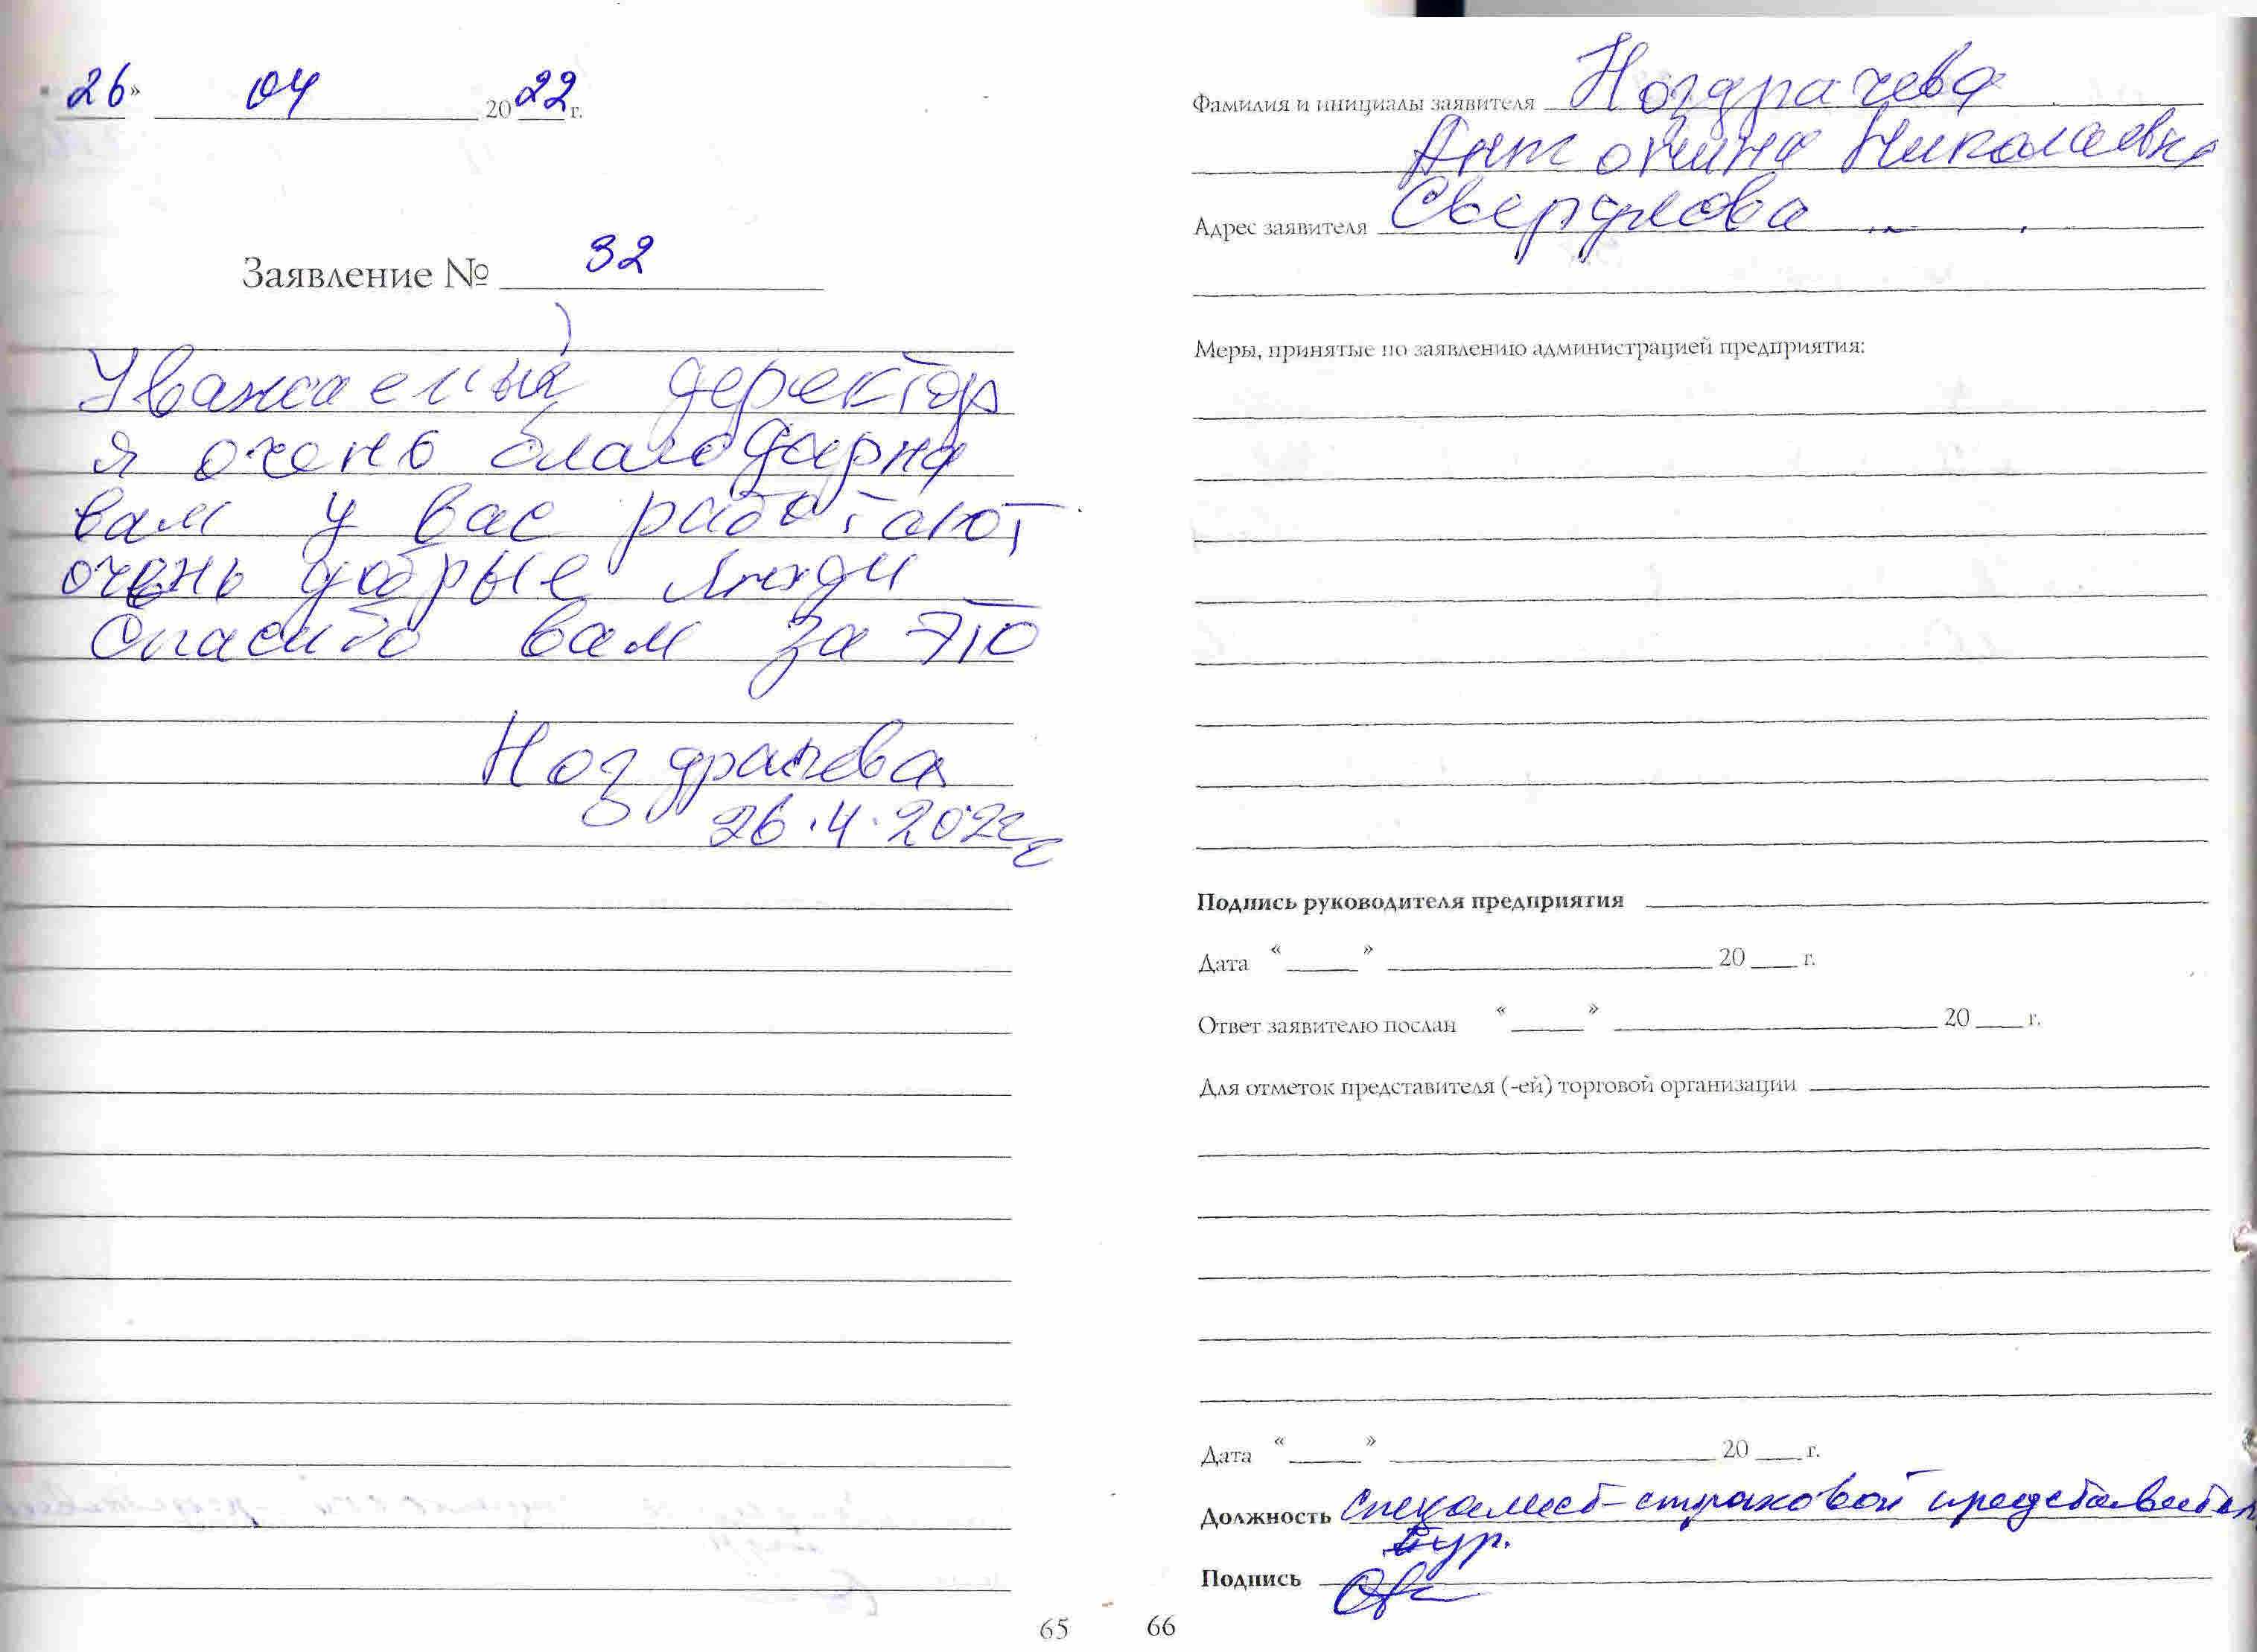 26» 04 2022г.
Заявление № 32
Уважаемый деректор
я очень благодарна
вам у вас работают
очень добрые люди
Спасибо вам за это
Ноздрачева
26.4.2022г
65
Фамилия и инициалы заявителя Ноздрачева
Антонина Николаевна
Адрес заявителя Свердлова
Меры, принятые по заявлению администрацией предприятия:
Подпись руководителя предприятия
Дата « » 20 г.
Ответ заявителю послан « » 20 г.
Для отметок представителя (-ей) торговой организации
Дата « » 20 г.
Должность Специалист-страховой представитель
Подпись
66